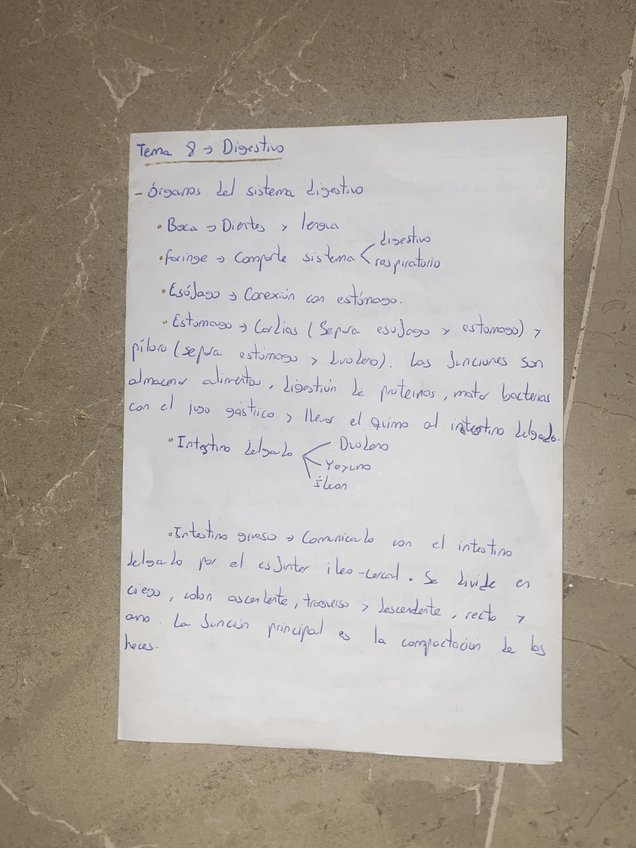 Tema 8 → Digestivo
- Órganos del sistema digestivo
• Boca → Dientes y lengua
• Faringe → Comparte sistema < digestivo
respiratorio
• Esófago → Conexión con estómago.
• Estomago → Cardias (Separa esófago y estomago) y
píloro (separa estómago y duodeno). Las funciones son
almacenar alimentos, digestión de proteínas, matar bacterias
con el jugo gástrico y llevar el quimo al intestino delgado.
• Intestino delgado < Duodeno
Yeyuno
Íleon
• Intestino grueso → Comunicado con el intestino
delgado por el esfinter ileo-cecal. Se divide en
ciego, colon ascendente, trasverso y descendente, recto y
ano. La función principal es la compactación de las
heces.